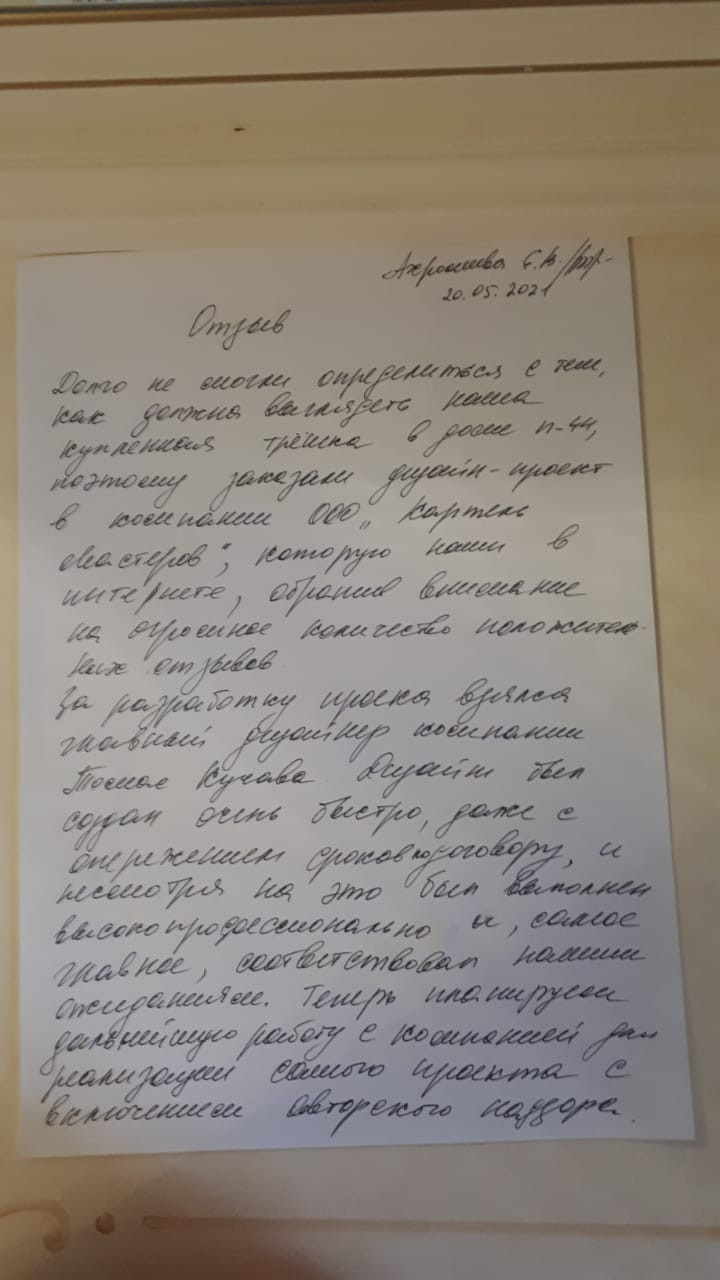 Е.В.
20.05.2021
Отзыв
Долго не могли определиться с тем,
как должна выглядеть наша
купленная трёшка в доме п-44,
поэтому заказали дизайн-проект
в компании ООО „Картель
мастеров", которую нашли в
интернете, обратив внимание
на огромное количество положитель-
ных отзывов
За разработку проека взялся
главный дизайнер компании
Кучава. Дизайн был
создан очень быстро, даже с
опережением сроков по договору, и
несмотря на это был выполнен
высокопрофессионально и, самое
главное, соответствовал нашим
ожиданиям. Теперь планируем
дальнейшую работу с компанией для
реализации самого проекта с
включением авторского надзора.